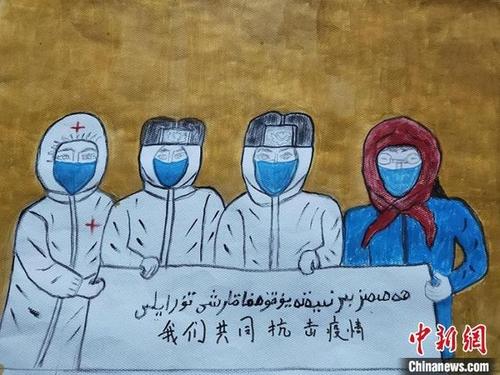 ھەممىز بىر نىيەتتە يۇقۇمغا قارشى تۇرايلى
我们共同抗击疫情
中新网
Chinanews.com